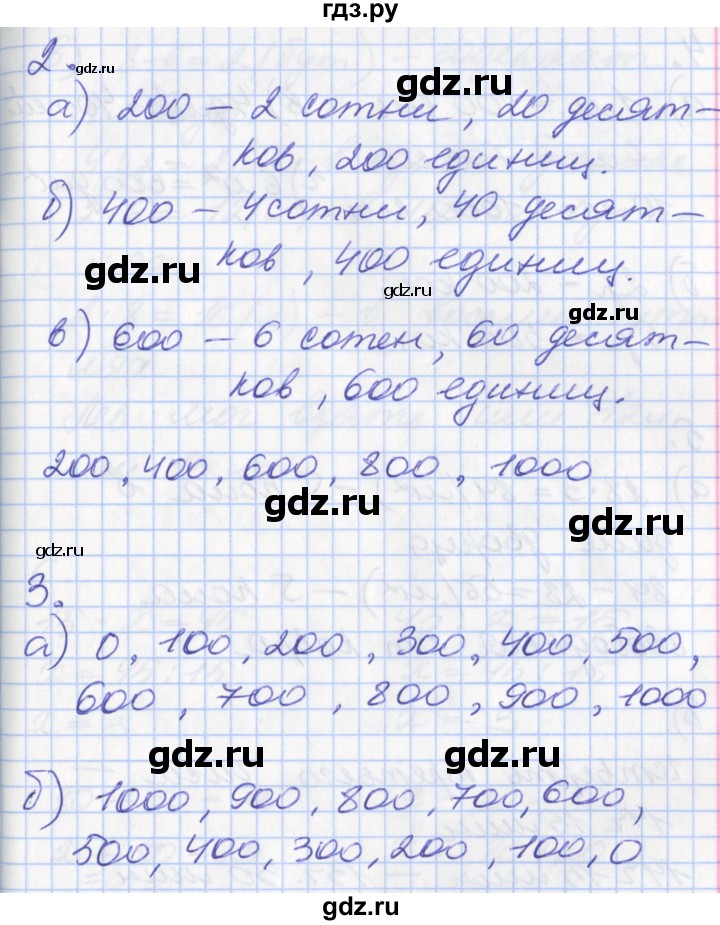 гдз.ру
2. gdz.ru
а) 200 – 2 сотни, 20 десят–
gdz.ru
ков, 200 единиц.
б) 400 – 4 сотни, 40 десят–
ков, 400 единиц.
gdz.ru
gdz.ru
gdz.ru
в) 600 – 6 сотен, 60 десят–
ков, 600 единиц.
200, 400, 600, 800, 1000
gdz.ru
gdz.ru
gdz.ru
3.
а) 0, 100, 200, 300, 400, 500,
600, 700, 800, 900, 1000
gdz.ru gdz.ru
б) 1000, 900, 800, 700, 600,
500, 400, 300, 200, 100, 0
gdz.ru